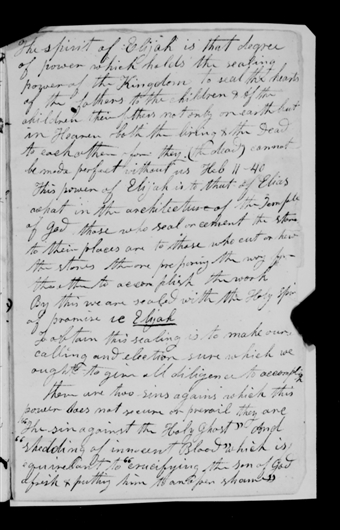 The spirit of Elijah is that degree
of power which holds the sealing
power of the Kingdom to seal the hearts
of the fathers to the children & of the
children to their fathers not only on earth but
in Heaven both the living & the dead
to each other for they (the dead) cannot
be made perfect without us Heb 11-40
This power of Elijah is to that of Elias
what in the architecture of the Temple
of God those who seal or cement the stone
to their places are to those who cut or hew
the stones the one preparing the way for
the other to accomplish the work
By this we are sealed with the Holy Spirit
of promise ie Elijah
To obtain this sealing is to make our
calling and election sure which we
ought to give all diligence to accomplish
There are two sins agains which this
power does not secure or prevail they are
"The sin against the Holy Ghost" and
"shedding of innocent Blood" which is
equivalent to "crucifying the son of God
afresh & putting him to an open shame"